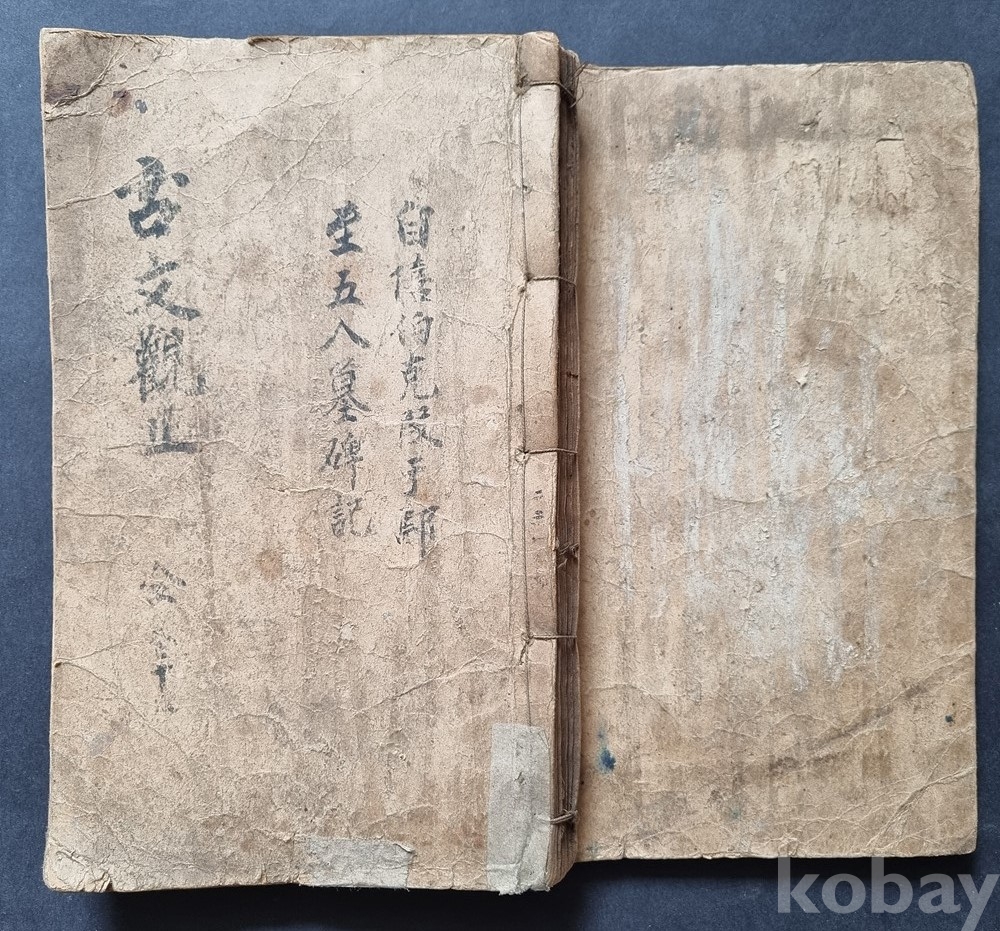 自伯克段于鄢
至五人墓碑記
古文觀止 全
kobay